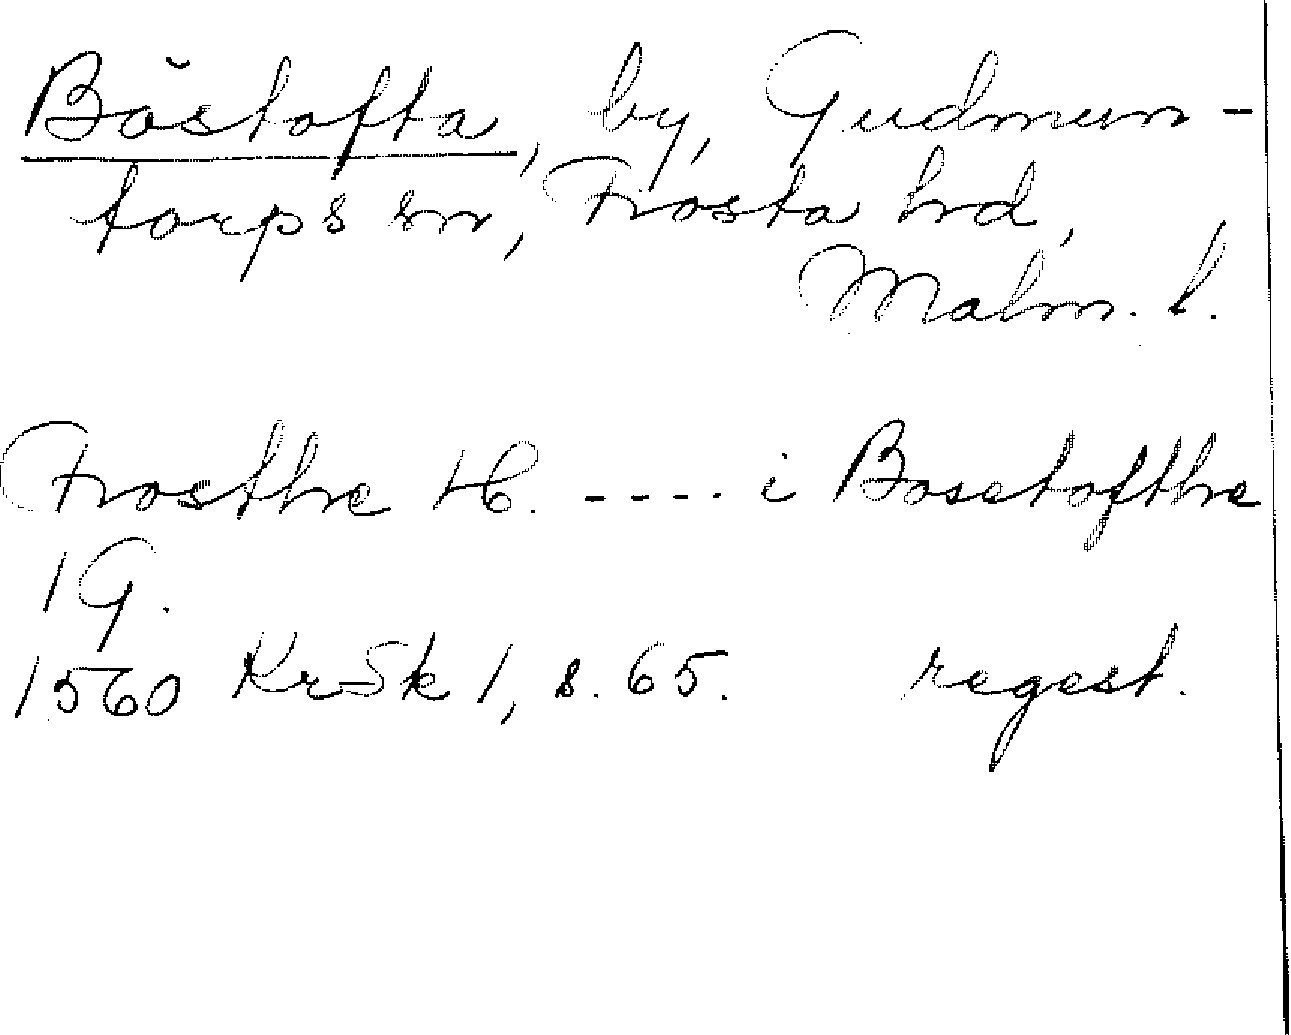 Böstofta, by, Gudmun-
torps sn, Frosta hd,
Malm. l.
Frosthe H. ---- i Bosetofthe
1 G.
1560 KrSk 1, s. 65. regest.